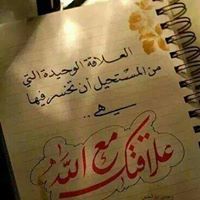 العلاقة الوحيدة التي
من المستحيل أن تخسر فيها
هي ..
علاقتك مع الله